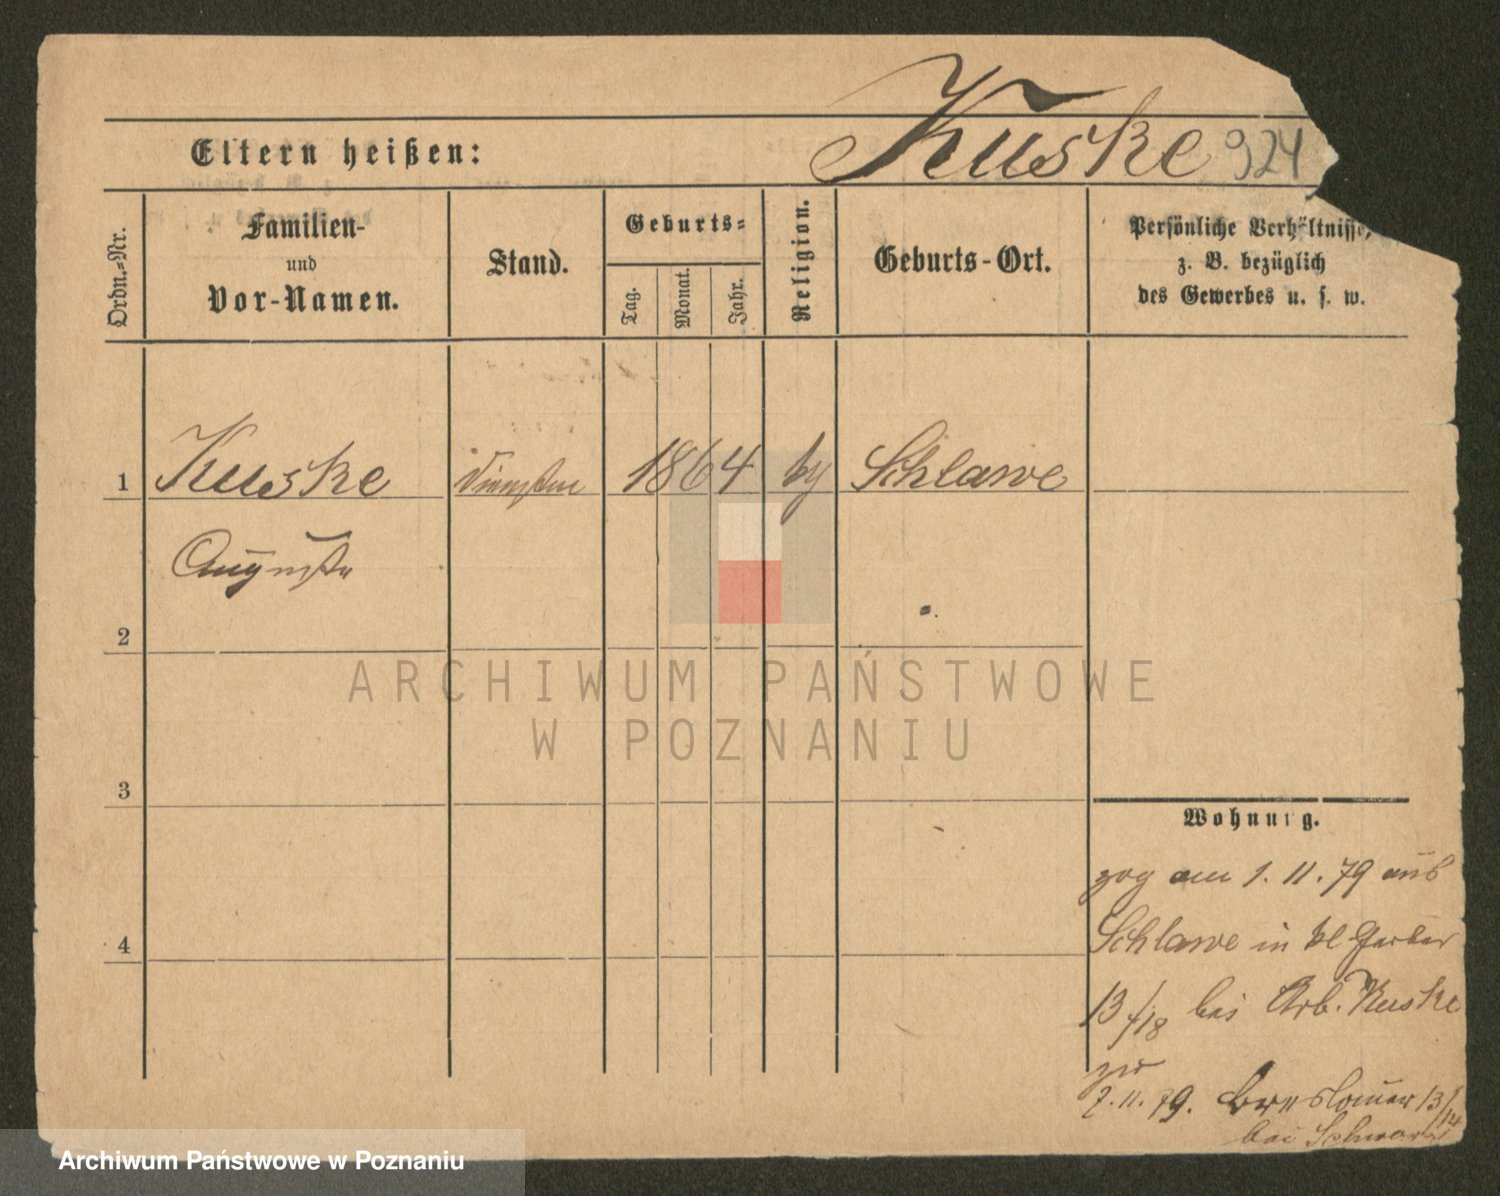 Kuske 924
Eltern heißen:
Ordn.-Nr.
Familien-
und
Vor-Namen.
Stand.
Geburts-
Tag.
Monat.
Jahr.
Religion.
Geburts-Ort.
Persönliche Verhältnisse,
z. B. bezüglich
des Gewerbes u. s. w.
1 Kuske 1864 Schlawe
Auguste
2
3
4
Wohnung.
zog am 1. 11. 79 aus
Schlawe in kl Gerber
13/18 bei Arb. Kuske
zu
7. 11. 79. Breslauer 13/14
bei
ARCHIWUM PAŃSTWOWE
W POZNANIU
Archiwum Państwowe w Poznaniu